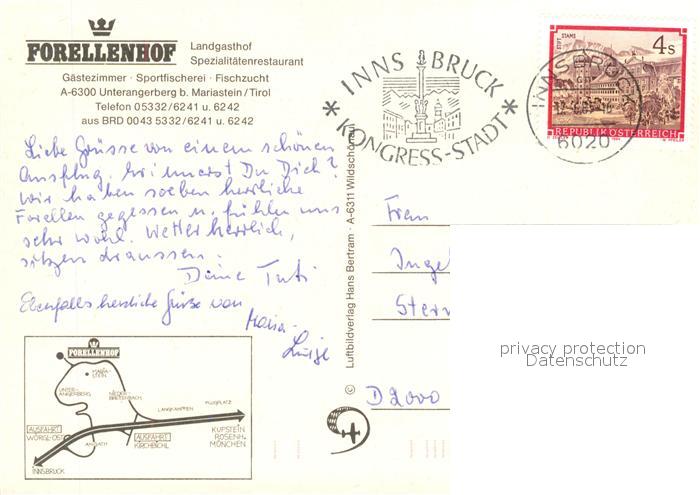 FORELLENHOF
Landgasthof
Spezialitätenrestaurant
Gästezimmer · Sportfischerei · Fischzucht
A-6300 Unterangerberg b. Mariastein/Tirol
Telefon 05332/6241 u. 6242
aus BRD 0043 5332/6241 u. 6242
INNSBRUCK
KONGRESS-STADT
INNSBRUCK
6020
STIFT STAMS
4s
REPUBLIK ÖSTERREICH
Liebe Grüsse von einem schönen
Ausflug. Erinnerst Du Dich?
Wir haben soeben herrliche
Forellen gegessen u. fühlen uns
sehr wohl. Wetter herrlich,
sitzen draussen.
Deine Tuti
Ebenfalls herzliche Grüße von
Maria-
Luise
© Luftbildverlag Hans Bertram · A-6311 Wildschönau
Frau
Inge
Stern
D 2000
privacy protection
Datenschutz
FORELLENHOF
MARIA-
STEIN
UNTER-
ANGERBERG
NIEDER-
BREITENBACH
LANGKAMPFEN
FLUGPLATZ
AUSFAHRT
WÖRGL-OST
ANGATH
AUSFAHRT
KIRCHBICHL
KUFSTEIN
ROSENH.
MÜNCHEN
INNSBRUCK